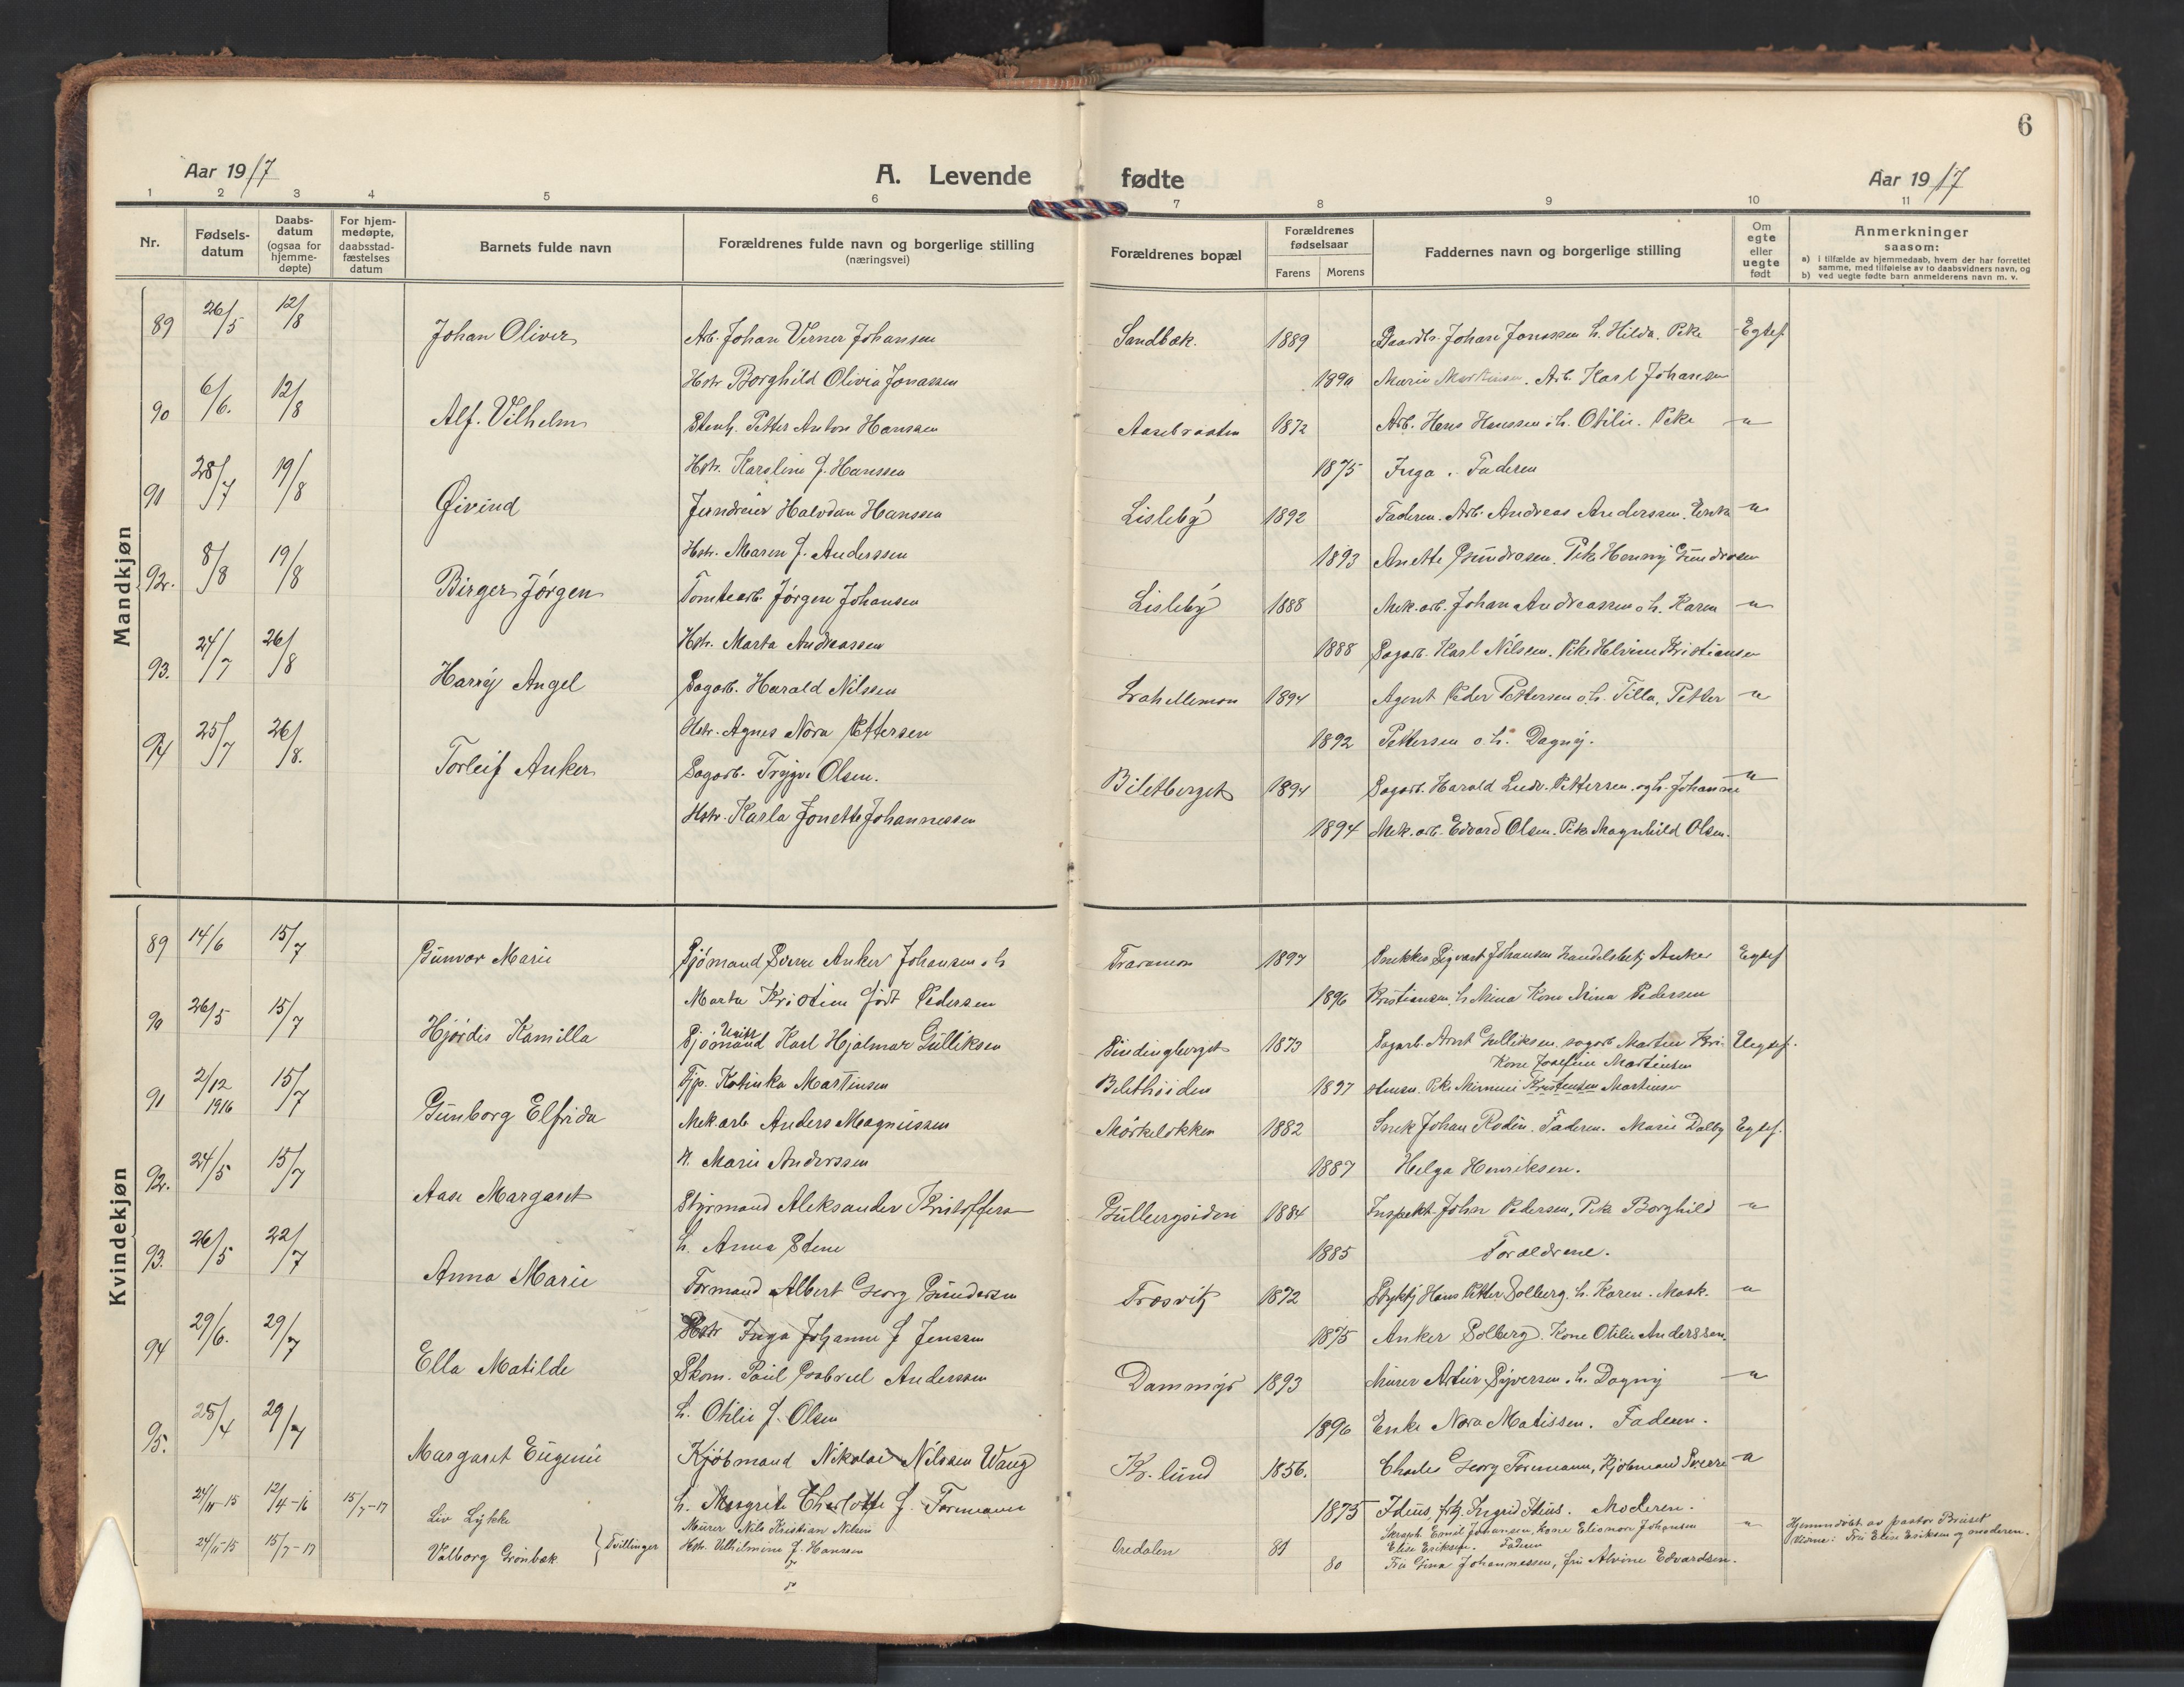 6
Aar 1917
A. Levende fødte
Aar 1917
1 2 3 4 5 6 7 8 9 10 11
Nr.
Fødsels-
datum
Daabs-
datum
(ogsaa for
hjemme-
døpte)
For hjem-
medøpte,
daabsstad-
fæstelses
datum
Barnets fulde navn
Forældrenes fulde navn og borgerlige stilling
(næringsvei)
Forældrenes bopæl
Forældrenes
fødselsaar
Farens Morens
Faddernes navn og borgerlige stilling
Om
egte
eller
uegte
født
Anmerkninger
saasom:
a) i tilfælde av hjemmedaab, hvem der har forrettet
samme, med tilføielse av to daabsvidners navn, og
b) ved uegte fødte barn anmelderens navn m. v.
Mandkjøn
89 26/5 12/8 Johan Oliver Arb. Johan Verner Johansen Sandbæk. 1889 Gaardbr. Johan Jonassen h. Hilda. Pike Egtef.
Hstr Borghild Olivia Jonassen 1890 Marie Martinsen. Arb. Karl Johansen
90 6/6. 12/8 Alf. Vilhelm Stenh. Petter Anton Hanssen Aasebraaten 1872 Arb. Hans Hanssen o h. Otilie. Pike "
Hstr. Karoline f. Hanssen 1875 Inga. Faderen
91 28/7 19/8 Øivind Jerndreier Halvdan Hanssen Lisleby 1892 Faderen. Arb. Andreas Anderssen. Enke "
Hstr. Maren f. Anderssen 1893 Anette Gundrosen. Pike Henny Gundrosen
92. 8/8 19/8 Birger Jørgen Tomtearb. Jørgen Johansen Lisleby 1888 Mek. arb. Johan Andreassen o h. Karen "
Hstr. Marta Andreassen 1888 Sagarb. Karl Nilsen. Pike Helvine Kristiansen
93. 24/7 26/8 Harry Angel Sagarb. Harald Nilssen 1894 Agent Peder Pettersen o. h. Tilla, Petter "
Hstr. Agnes Nora Pettersen 1892 Pettersen o. h. Dagny.
94 25/7 26/8. Torleif Anker Sagarb. Trygve Olsen. Biletberget 1894 Sagarb. Harald Ludv. Pettersen. og h. Johanne "
Hstr. Karla Jonette Johannessen 1894 Mek. arb. Edvard Olsen. Pike Magnhild Olsen.
Kvindekjøn
89 14/6 15/7 Gunvor Marie Sjømand Sverre Anker Johansen o h Traramon 1897 Snekker Sigvart Johansen Handelsbetj Anker Egtef
Marta Kristine født Pedersen 1896 Kristiansen, h Mina Kone Mina Pedersen
90 26/5 15/7 Hjørdis Kamilla Sjømand Karl Hjalmar Gulliksen Bindingberget 1873 Sagarb. Arnt Gulliksen, sagarb Martin Kri- Uegtef.
Kone Josefine Martinsen
Tjp. Katinka Martinsen Bilethøiden 1897 stensen. Pike Mimmi Kristensen Martinsen
91 2/12 1916 15/7 Gunborg Elfrida Mek arb Anders Magnussen Mørkeløkken 1882 Snek Johan Rodin. Faderen. Marie Dalby Egtef.
h. Marie Anderssen 1887 Helga Henriksen.
92. 24/5 15/7 Aase Margaret Styrmand Aleksander Kristoffersen Gullbergsiden 1884 Inspekt. Johan Pedersen, Pike Borghild "
h. Anna Stene 1885 Forældrene.
93. 26/5 22/7 Anna Marie Formand Albert Georg Gundersen Trosvik 1872 Hans Petter Solberg. h. Karen. Mask. "
Hstr Inga Johanne f Jenssen 1875 Anker Solberg. Kone Otilie Anderssen.
94 29/6. 29/7 Ella Matilde Skom. Paul Gabriel Anderssen Dammyr 1893 Murer Artur Syversen o. h. Dagny "
h. Otilie f. Olsen 1896 Enke Nora Matissen. Faderen.
95. 25/4 29/7 Margaret Eugenie Kjøbmand Nikolai Nilssen Wang Kr. lund 1856. Charles Georg Formann, Kjøbmand Sverre "
h. Margrete Charlotte f. Formann 1875 Ideus, frk. Ingrid Ideus. Moderen.
24/11-15 12/4-16 15/7-17 Liv Lykke Murer Nils Kristian Nilsen Skrædd. Emil Johansen, Kone Elionor Johansen " Hjemmedøbt av pastor Bruset
Tvillinger Hstr. Vilhelmine f. Hansen Elise Eriksen. Faderen Vidne: Fru Elise Eriksen og moderen.
24/11-15 15/7-17 Valborg Grønbæk do Oredalen 81 80 Fru Gina Johannessen, fru Alvine Edvardsen.
do